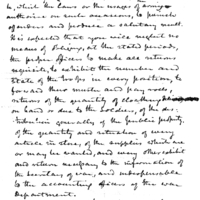 to, which the Laws or the usages of armies
authorise on such occasions, to punish
offenders and produce a salutary
It is expected that you will neglect no
means of obliging, at the stated periods,
the proper officers to make all returns
requisite, to exhibit the number and
state of the troops in every position, to
forward their muster and pay rolls,
returns of the quantity of cloathing
on hand or due to the soldier, of the
generally of the public property,
of the quantity and situation of every
article in store, of the supplies which are
or may be wanted, and every other exhibit
and return necessary to the information of
the Secretary of war, and indispensable
to the accounting officers of the war
Department.